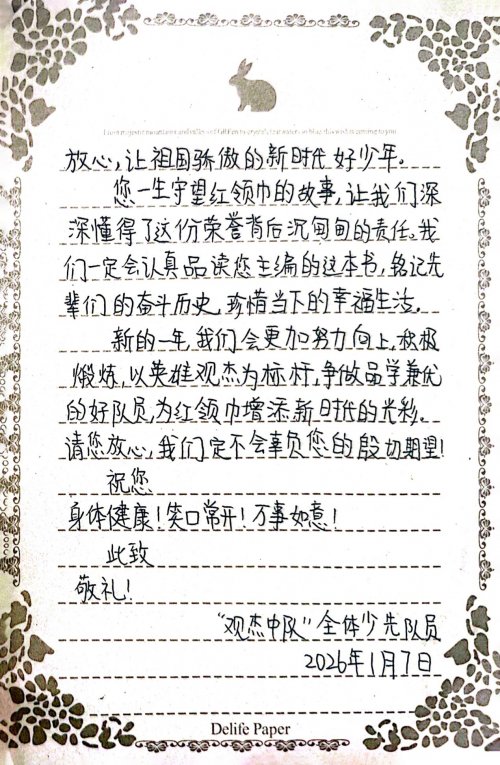 放心,让祖国骄傲的新时代好少年。
您一生守望红领巾的故事,让我们深
深懂得了这份荣誉背后沉甸甸的责任。我
们一定会认真品读您主编的这本书,铭记先
辈们的奋斗历史,珍惜当下的幸福生活。
新的一年,我们会更加努力向上,积极
煅炼,以英雄观杰为标杆,争做品学兼优
的好队员,为红领巾增添新时代的光彩。
请您放心,我们定不会辜负您的殷切期望!
祝您
身体健康!笑口常开!万事如意!
此致
敬礼!
“观杰中队”全体少先队员
2026年1月7日
Delife Paper